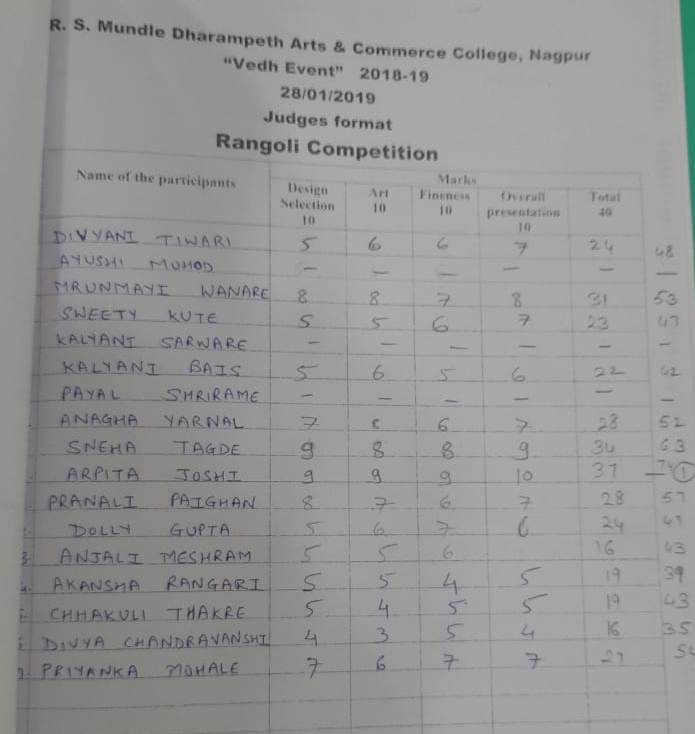 R. S. Mundle Dharampeth Arts & Commerce College, Nagpur
"Vedh Event" 2018-19
28/01/2019
Judges format
Rangoli Competition
Name of the participants Marks
Design Selection 10 Art 10 Fineness 10 Overall presentation 10 Total 40
DIVYANI TIWARI 5 6 6 7 24 48
AYUSHI MOHOD — — — — — —
MRUNMAYI WANARE 8 8 7 8 31 53
SWEETY KUTE 5 5 6 7 23 47
KALYANI SARWARE — — — — — —
KALYANI BAIS 5 6 5 6 22 42
PAYAL SHRIRAME — — — — — —
ANAGHA YARNAL 7 6 7 28 52
SNEHA TAGDE 9 8 8 9 34 63
ARPITA JOSHI 9 9 9 10 37 ①
PRANALI PAIGHAN 8 7 6 7 28 57
DOLLY GUPTA 5 6 7 6 24
3. ANJALI MESHRAM 5 5 6 16 43
AKANSHA RANGARI 5 5 4 5 19 39
CHHAKULI THAKRE 5 4 5 5 19 43
DIVYA CHANDRAVANSHI 4 3 5 4 16 35
7. PRIYANKA MOHALE 7 6 7 7 27